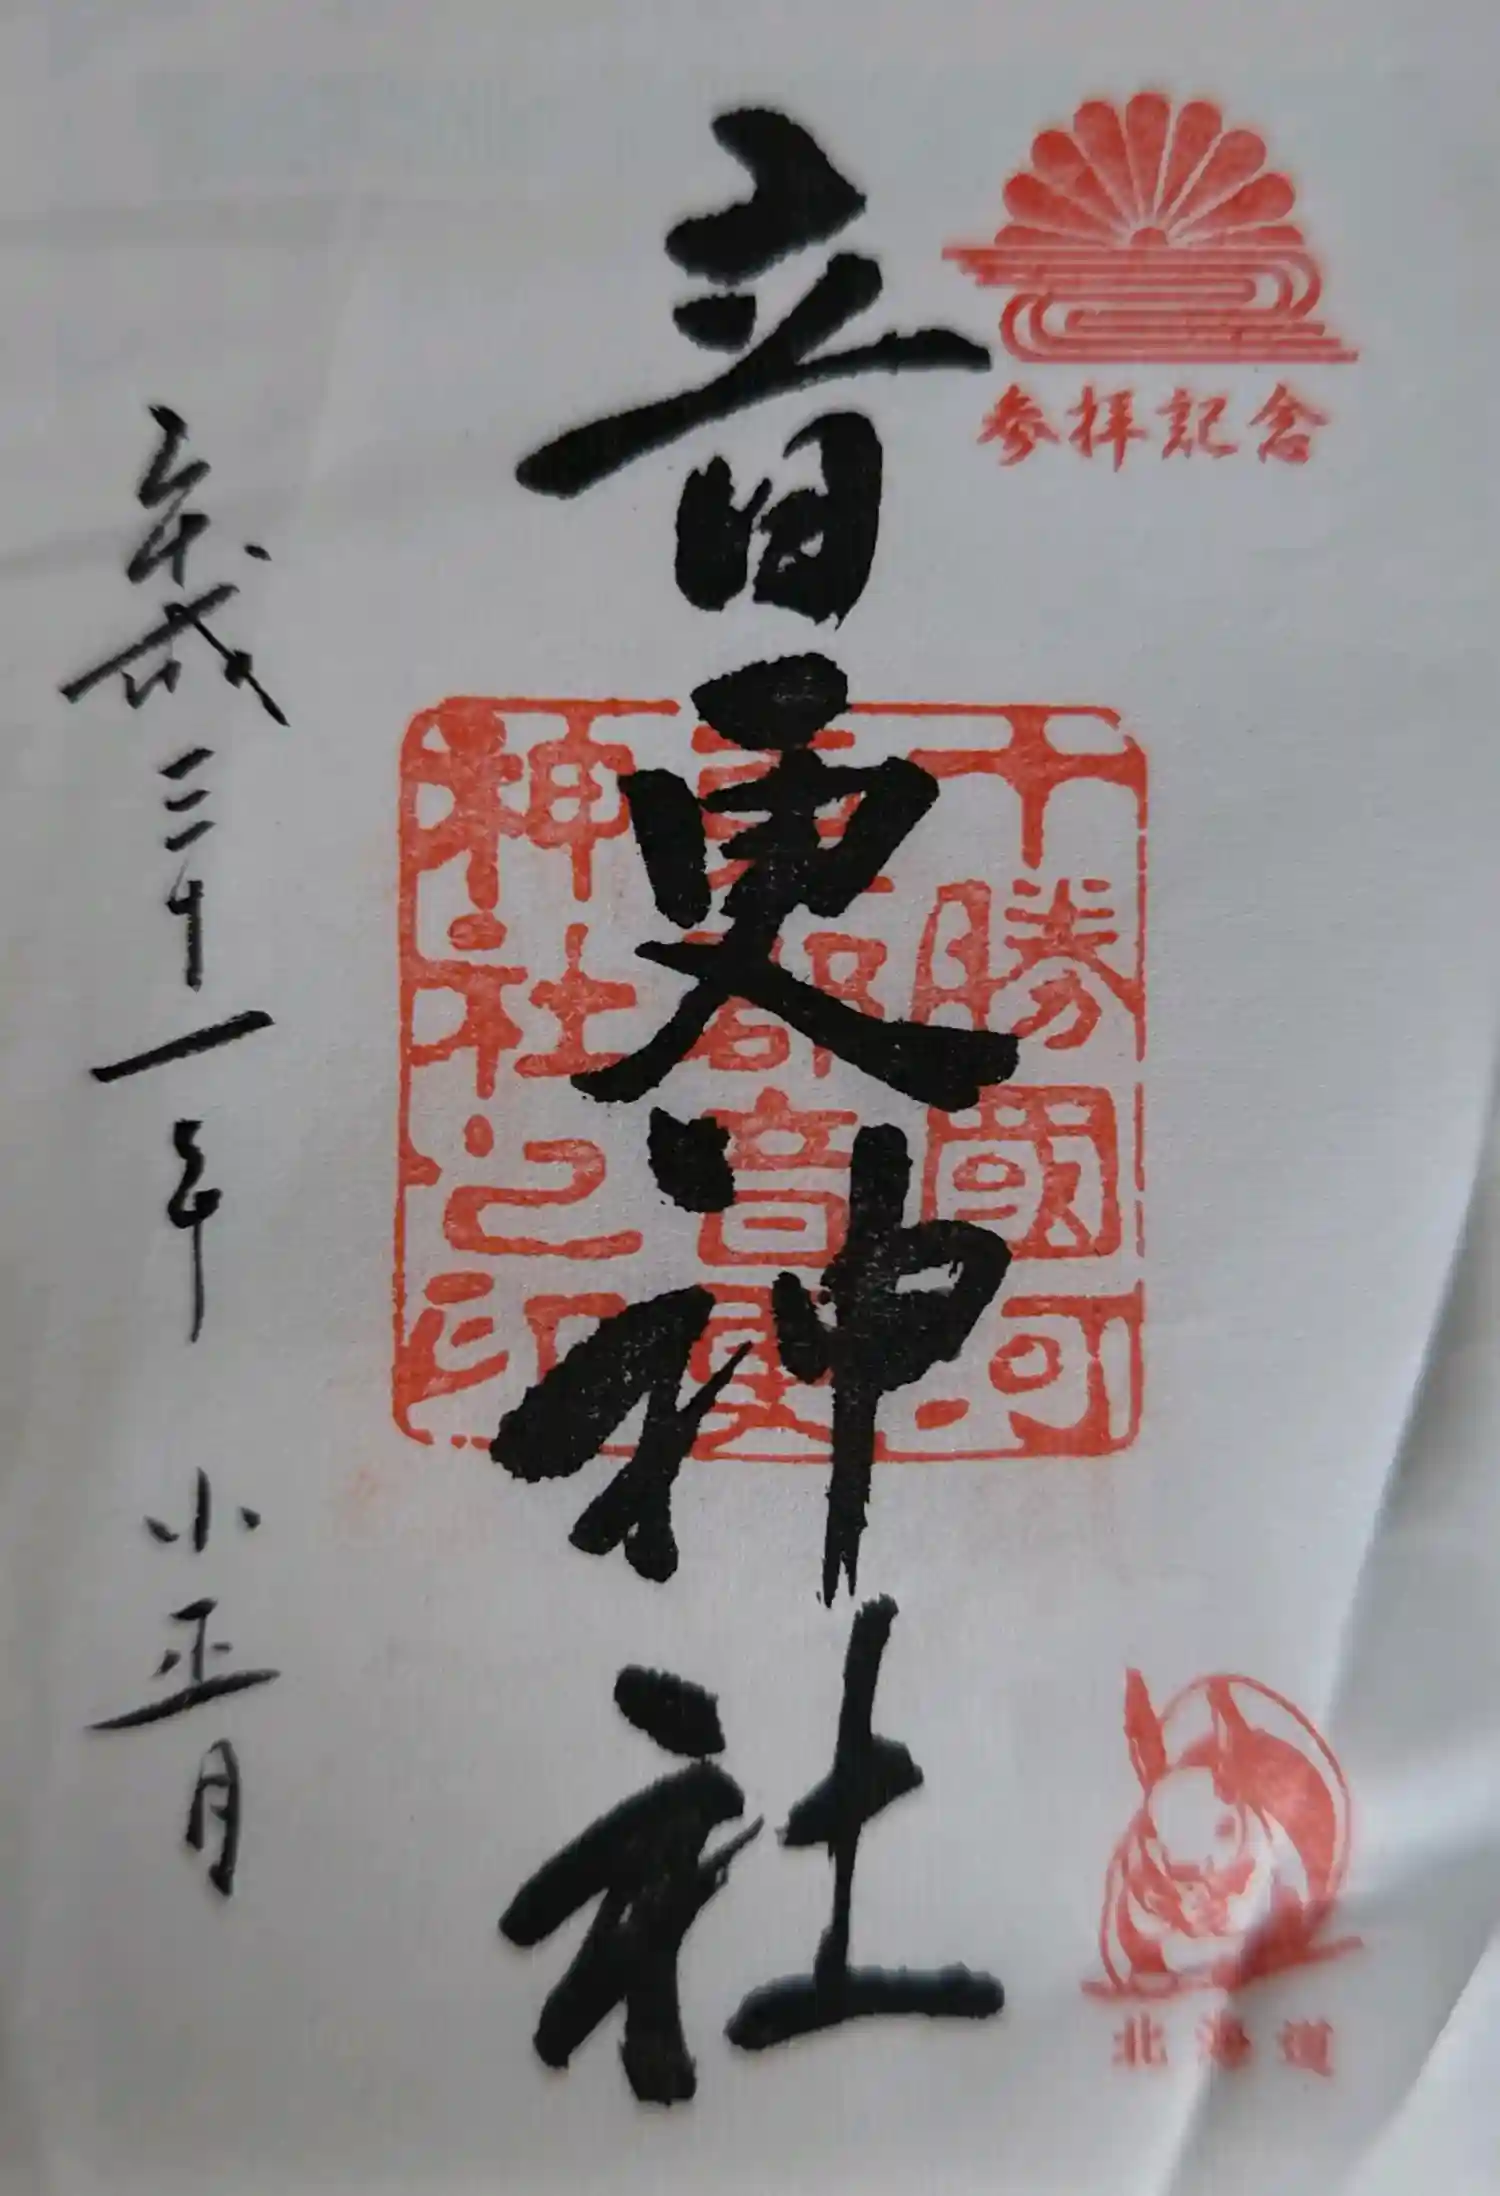 参拝記念
音更神社
十勝國河
東郡音更
神社之印
平成三十一年 小正月
北海道